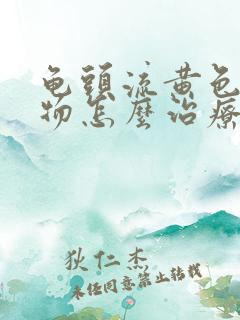 龟頭流黄色
物怎麽治療
狄仁杰
未经同意禁止转载